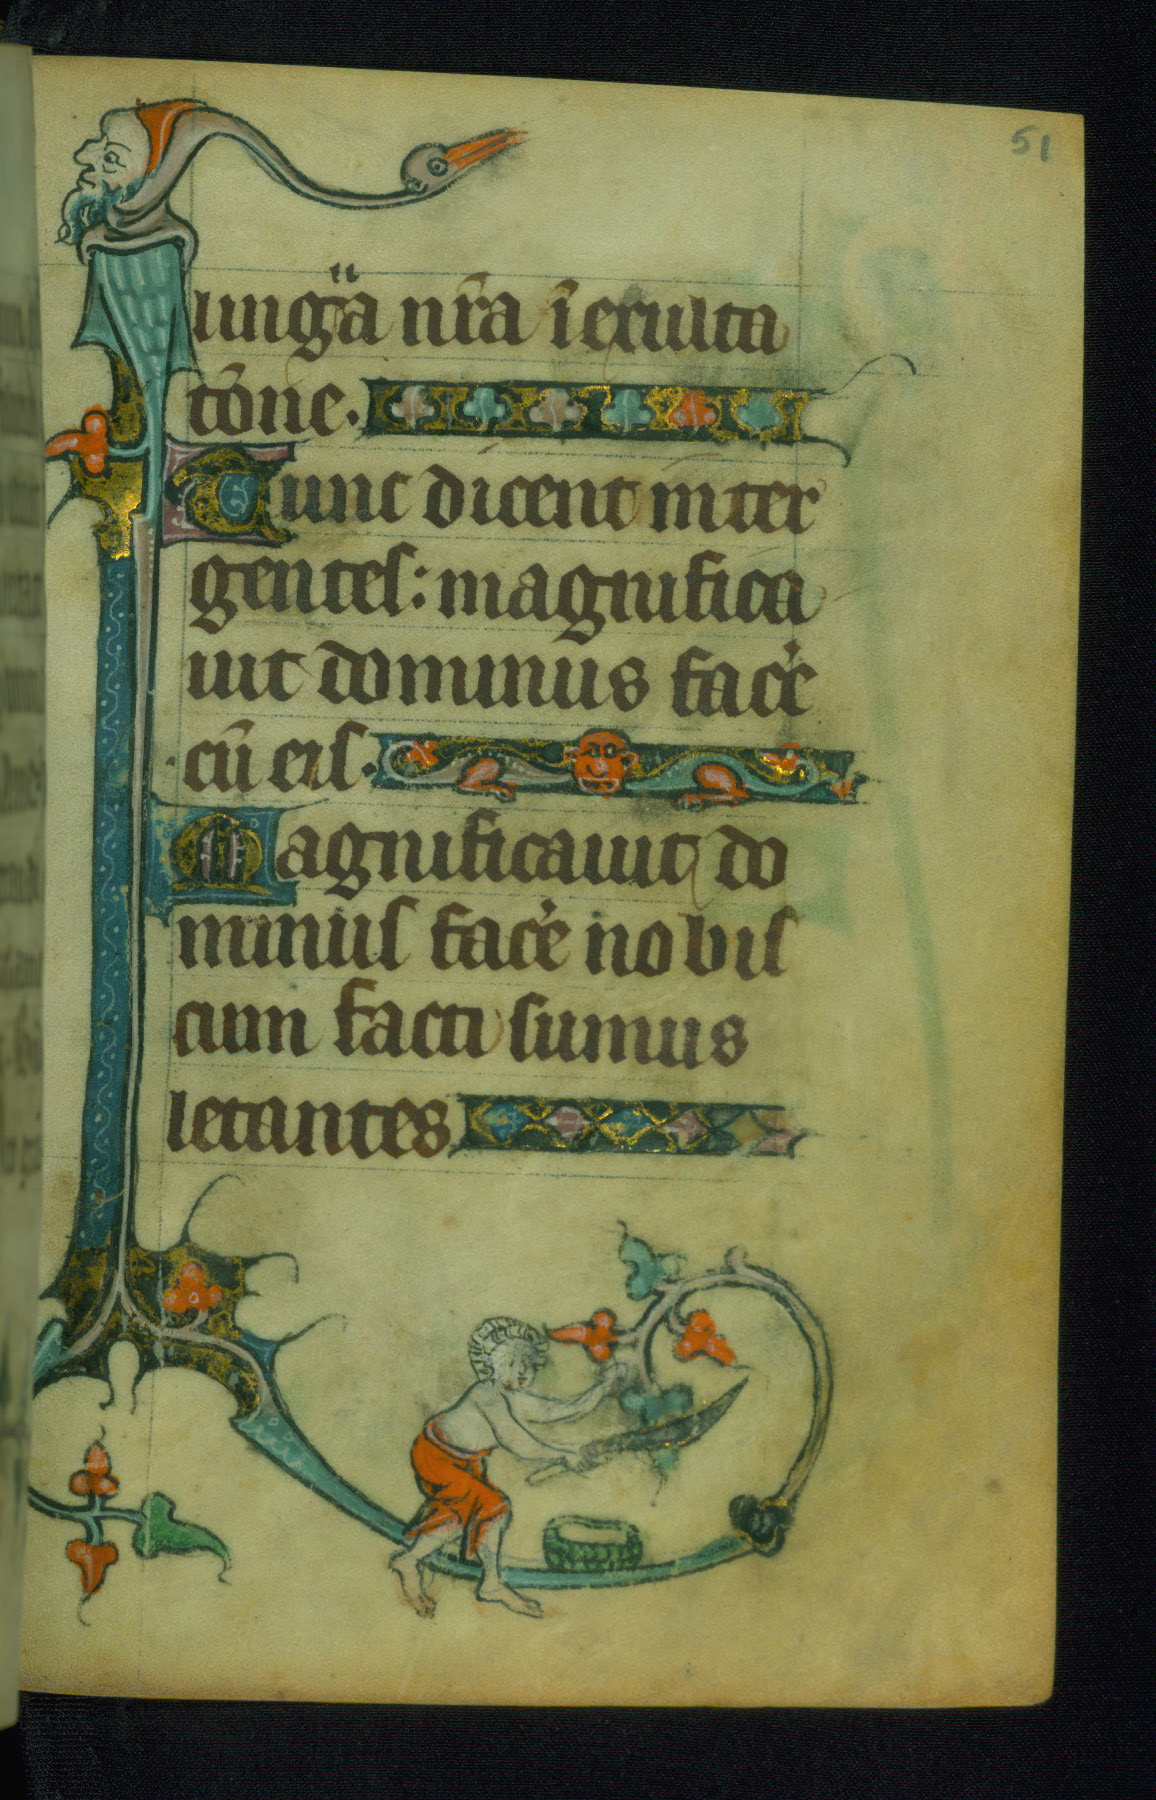 51
linga nr̃a ĩ exulta
tõne.
Tunc dicent inter
gentes: magnifica
uit dominus fac̛e
cũ eis.
Magnificauit do
minus fac̛e nobis
cum facti sumus
letantes